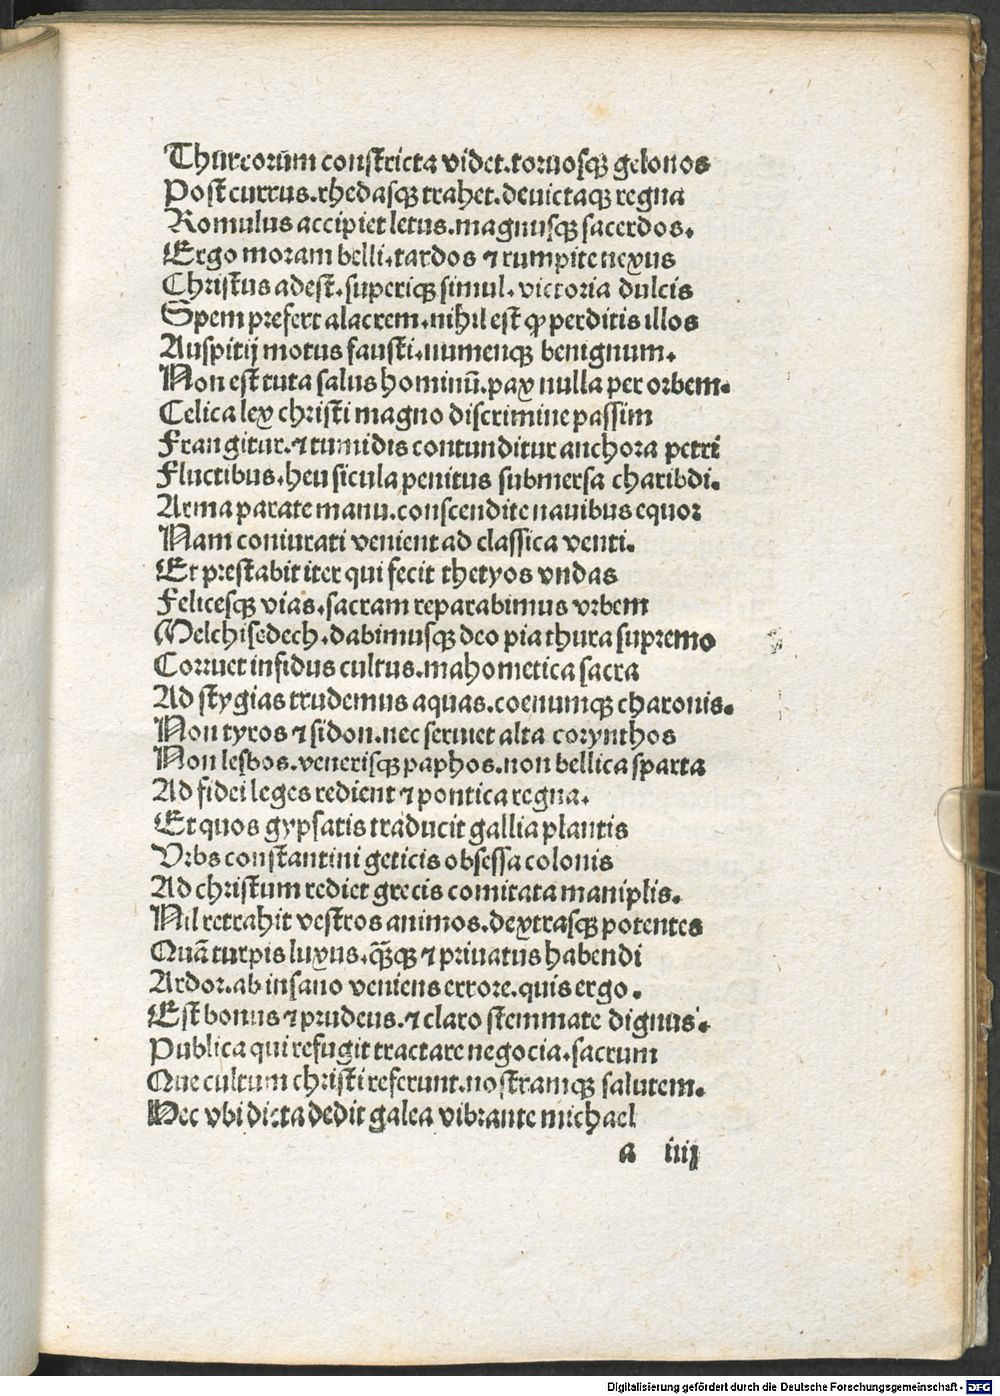 Thureorūm constricta videt.toruosqꝫ gelonos
Post currus.rhedasqꝫ trahet.deuictaqꝫ regna
Romulus accipiet letus.magnusqꝫ sacerdos.
Ergo moram belli.tardos ⁊ rumpite nexus
Christus adest.superiqꝫ simul.victoria dulcis
Spem prefert alacrem.nihil est ꝙ perditis illos
Auspitij motus fausti.numenqꝫ benignum.
Non est tuta salus hominū.pax nulla per orbem.
Celica lex christi magno discrimine passim
Frangitur.⁊ tumidis contunditur anchora petri
Fluctibus.heu sicula penitus submersa charibdi.
Arma parate manu.conscendite nauibus equor
Nam coniurati venient ad classica venti.
Et prestabit iter qui fecit thetyos vndas
Felicesqꝫ vias.sacram reparabimus vrbem
Melchisedech.dabimusqꝫ deo pia thura supremo
Corruet infidus cultus.mahometica sacra
Ad stygias trudemus aquas.coenumqꝫ charonis.
Non tyros ⁊ sidon.nec seruet alta corynthos
Non lesbos.venerisqꝫ paphos.non bellica sparta
Ad fidei leges redient ⁊ pontica regna.
Et quos gypsatis traducit gallia plantis
Vrbs constantini geticis obsessa colonis
Ad christum rediet grecis comitata maniplis.
Nil retrahit vestros animos.dextrasqꝫ potentes
Quā turpis luxus.qꝫ̄qꝫ ⁊ priuatus habendi
Ardor.ab insano veniens errore.quis ergo.
Est bonus ⁊ prudens.⁊ claro stemmate dignus.
Publica qui refugit tractare negocia.sacrum
Que cultum christi referunt.nostramqꝫ salutem.
Hec vbi dicta dedit galea vibrante michael
a iiij
Digitalisierung gefördert durch die Deutsche Forschungsgemeinschaft - DFG